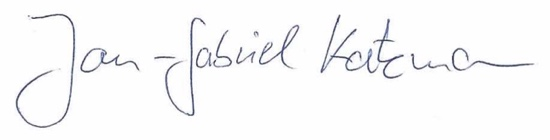 Jan-Gabriel Katzman